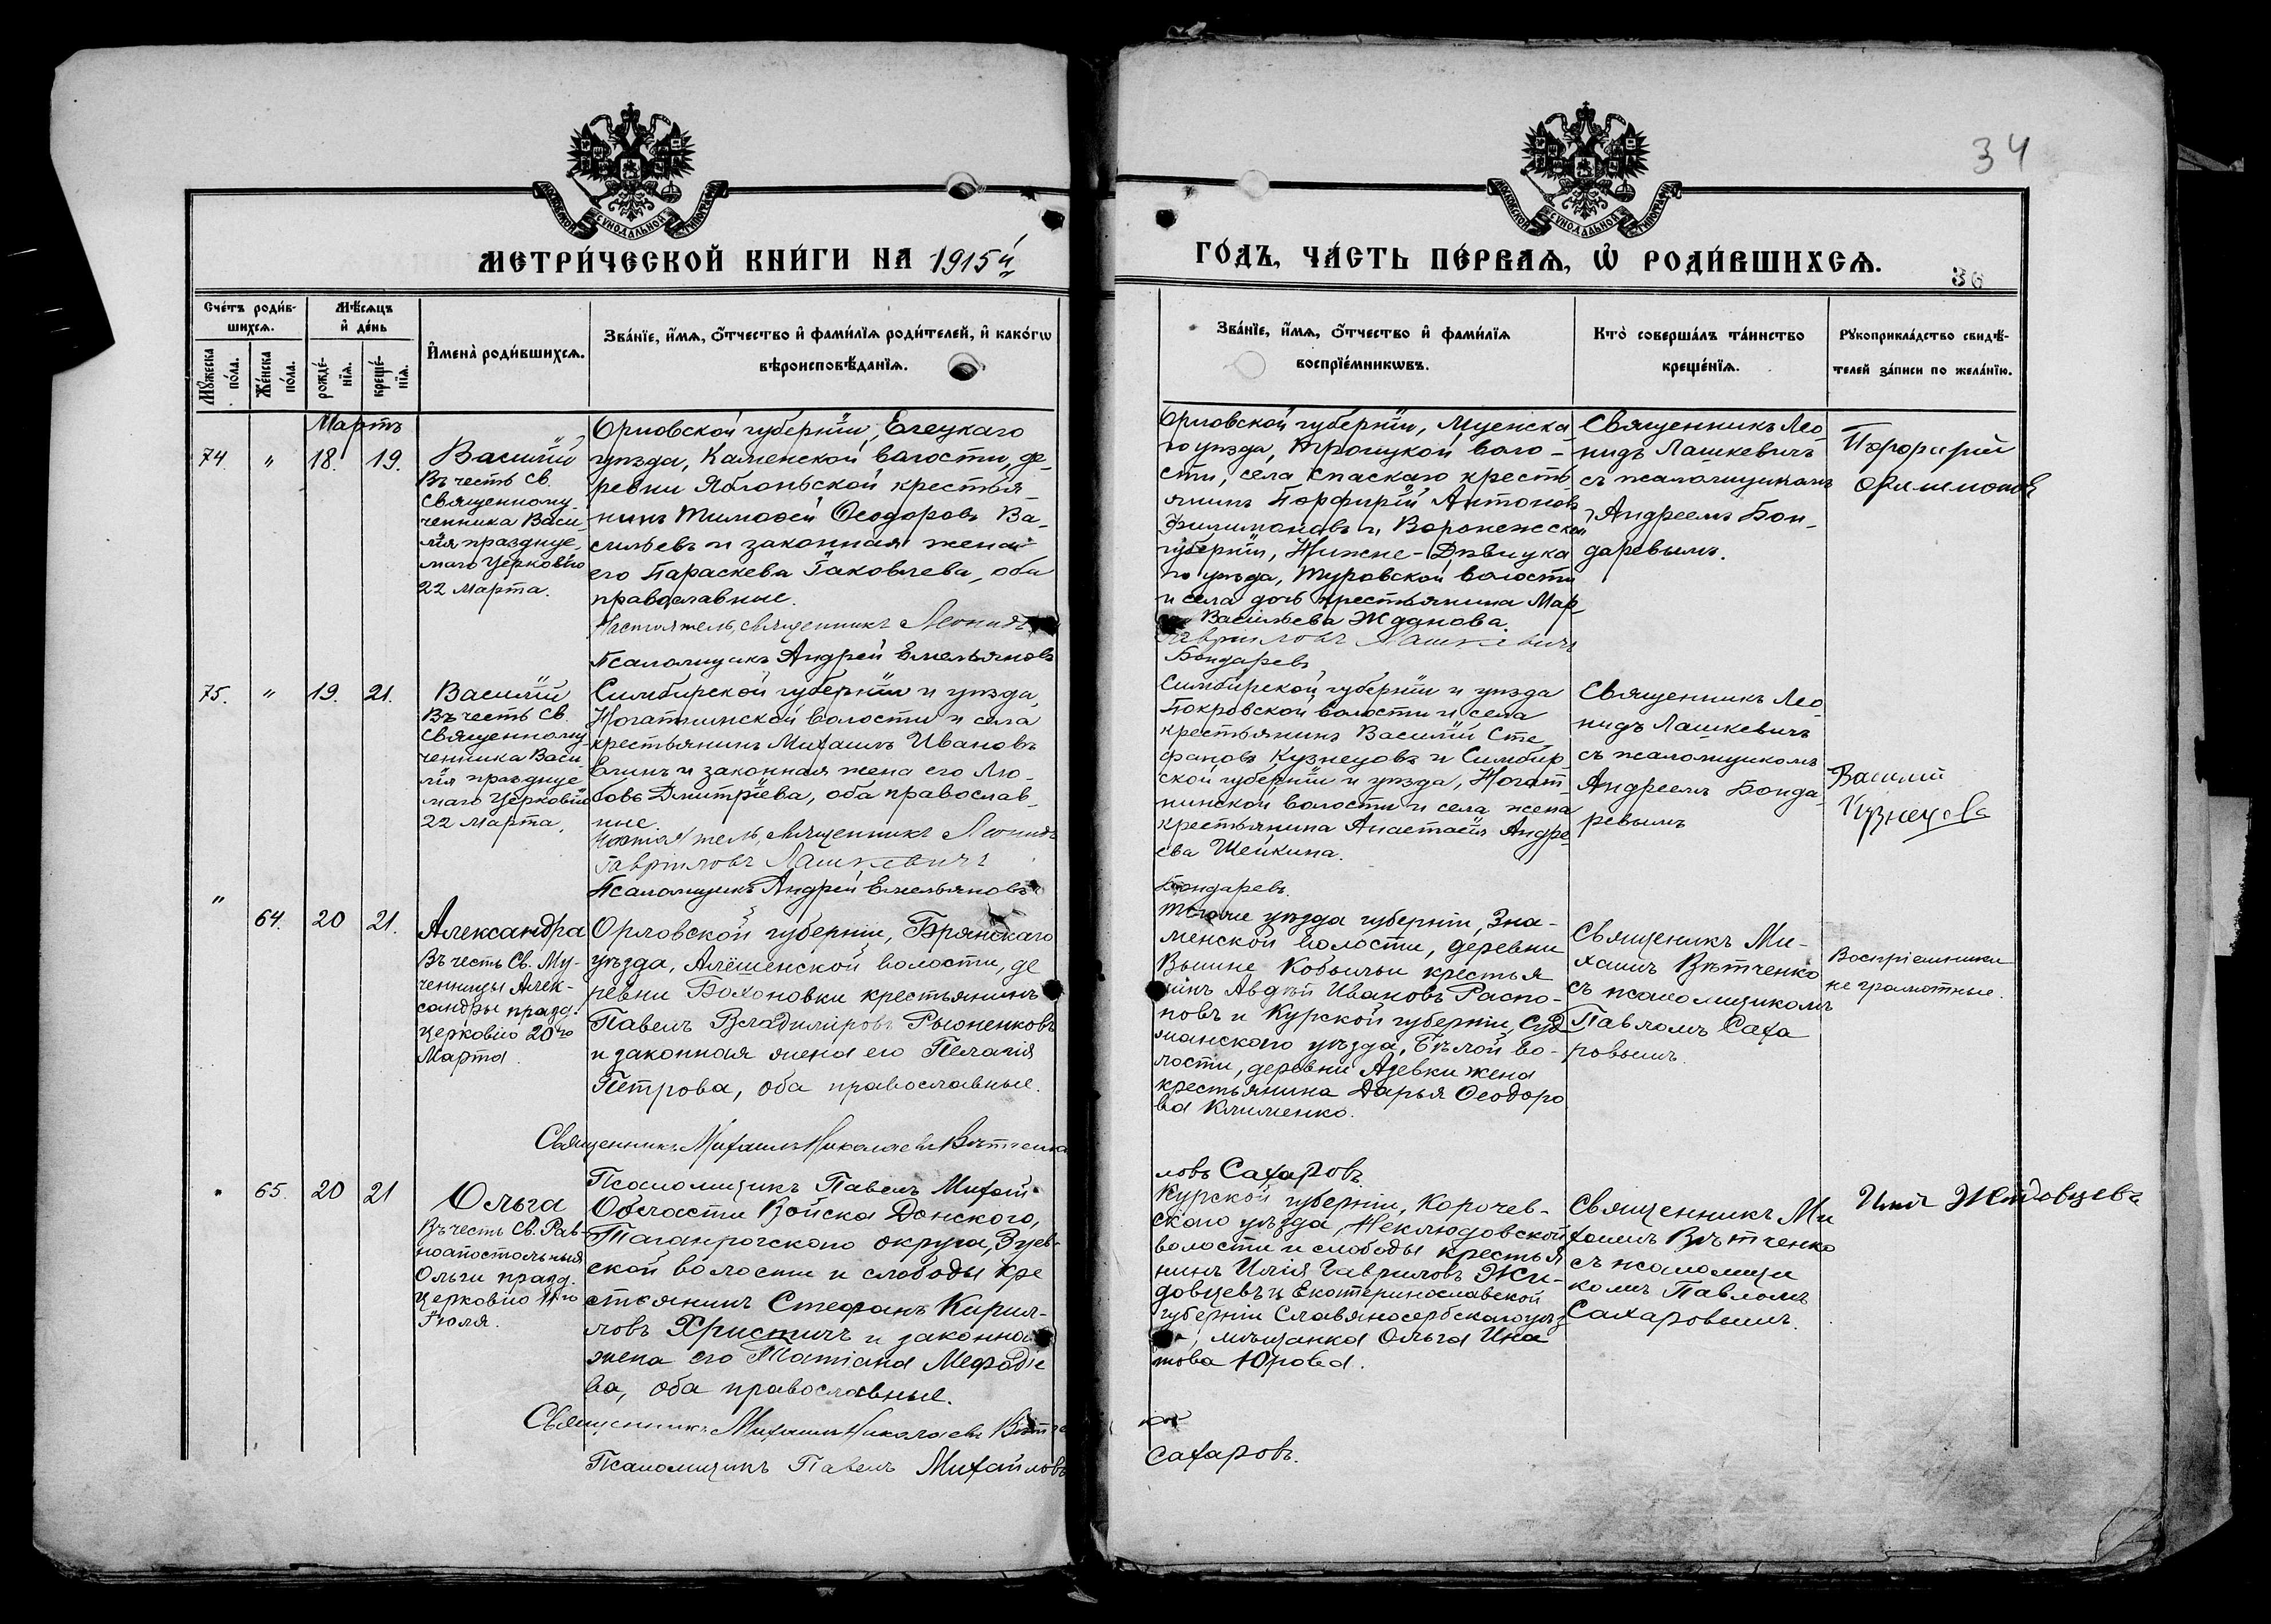 34
МОСКОВСКОЙ СУНОДАЛЬНОЙ ТИПОГРАФІИ
МОСКОВСКОЙ СУНОДАЛЬНОЙ ТИПОГРАФІИ
МЕТРИ́ЧЕСКОЙ КНИ́ГИ НА 1915й
ГО́ДЪ, ЧА́СТЬ ПЕ́РВАѦ, Ѡ҆ РОДИ́ВШИХСѦ.
36
Сче́тъ роди́в-
шихсѧ.
Мꙋ́жеска по́ла.
Же́нска по́ла.
Мѣ́сѧцъ
и҆ де́нь
рожде́-нїѧ.
креще́-нїѧ.
И҆мена̀ роди́вшихсѧ.
Зва́нїе, и҆́мѧ, ѻ҆́тчество и҆ фами́лїѧ роди́телей, и҆ како́гѡ
вѣроисповѣ́данїѧ.
Зва́нїе, и҆́мѧ, ѻ҆́тчество и҆ фами́лїѧ
воспрїе́мникѡвъ.
Кто̀ соверша́лъ та́инство
креще́нїѧ.
Рꙋкоприкла́дство свидѣ́-
телей за́писи по жела́нїю.
Мартъ
74. " 18. 19.
Василій
Въ честь Св.
Священному-
ченника Васи-
лія празднуе-
маго Церковію
22 Марта.
Орловской губерніи, Елецкаго
уѣзда, Каменской волости, де-
ревни Яблоньской крестья-
нинъ Тимоѳей Ѳеодоровъ Ва-
сильевъ и законная жена
его Параскева Іаковлева, оба
православные.
Настоятель, священникъ Леонидъ
Псаломщикъ Андрей Емельяновъ
Орловской губерніи, Мценска
го уѣзда, Троицкой воло-
сти, села Спаскаго кресть
янинъ Порфирій Антоновъ
Филимоновъ и Воронежской
губерніи, Нижне-Дѣвицка
го уѣзда, Туровской волости
и села дочь крестьянина Мар
Васильева Жданова.
Гавриловъ Лашкевичъ
Бондаревъ
Священникъ Лео
нидъ Лашкевичъ
съ псаломщикомъ
Андреемъ Бон-
даревымъ.
Порфирій
Филимоновъ
75. " 19. 21.
Василій
Въ честь Св.
Священному-
ченника Васи-
лія празднуе
маго Церковію
22 Марта.
Симбирской губерніи и уѣзда,
Ногаткинской волости и села
крестьянинъ Михаилъ Ивановъ
и законная жена его Лю-
бовь Дмитріева, оба православ-
ные.
Настоятель, священникъ Леонидъ
Гавриловъ Лашкевичъ
Псаломщикъ Андрей Емельяновъ
Симбирской губерніи и уѣзда
Покровской волости и села
крестьянинъ Василій Сте
фановъ Кузнецовъ и Симбир-
ской губерніи и уѣзда, Ногат-
кинской волости и села жена
крестьянина Анастасія Андре
ева Шейкина.
Бондаревъ.
Священникъ Лео
нидъ Лашкевичъ
съ псаломщикомъ
Андреемъ Бонда-
ревымъ
Василий
Кузнецовъ
" 64. 20 21.
Александра
Въ честь Св. Му-
ченницы Алек-
сандры празд.
Церковію 20го
Марта.
Орловской губерніи, Брянскаго
уѣзда, Алёшенской волости, де
ревни крестьянинъ
Павелъ Владиміровъ
и законная жена его Пелагія
Петрова, оба православные.
Священникъ Михаилъ Николаевъ Вѣтченко
Псаломщикъ Павелъ Михай
уѣзда губерніи, Зна-
менской волости, деревни
Кобыльи крестья
нинъ Авдѣй Ивановъ Распо-
повъ и Курской губерніи, Суд
жанскаго уѣзда, Бѣлой во-
лости, деревни жена
крестьянина Дарья Ѳеодоро
ва Клименко.
ловъ Сахаровъ.
Священикъ Ми-
хаилъ Вѣтченко
съ псаломщикомъ
Павломъ Саха
ровымъ.
Воспріемники
не грамотные.
" 65. 20 21
Ольга
Въ честь Св. Рав-
ноапостольныя
Ольги празд.
Церковію 11го
Іюля.
Области Войска Донского,
Таганрогскаго округа, Зуев-
ской волости и слободы кре
стьянинъ Стефанъ Кирил-
ловъ Христичъ и законная
жена его Татіана Меѳодіе
ва, оба православные.
Священникъ Михаилъ Николаевъ
Псаломщикъ Павелъ Михайловъ
Курской губерніи, Корочев-
скаго уѣзда, Неклюдовской
волости и слободы крестья
нинъ Илія Гавриловъ Жи-
довцевъ и Екатеринославской
губерніи Славяносербскаго уѣз
мѣщанка Ольга Игна
това Юрова.
Сахаровъ.
Священникъ Ми
хаилъ Вѣтченко
съ псаломщи
комъ Павломъ
Сахаровымъ.
Илья Жидовцевъ